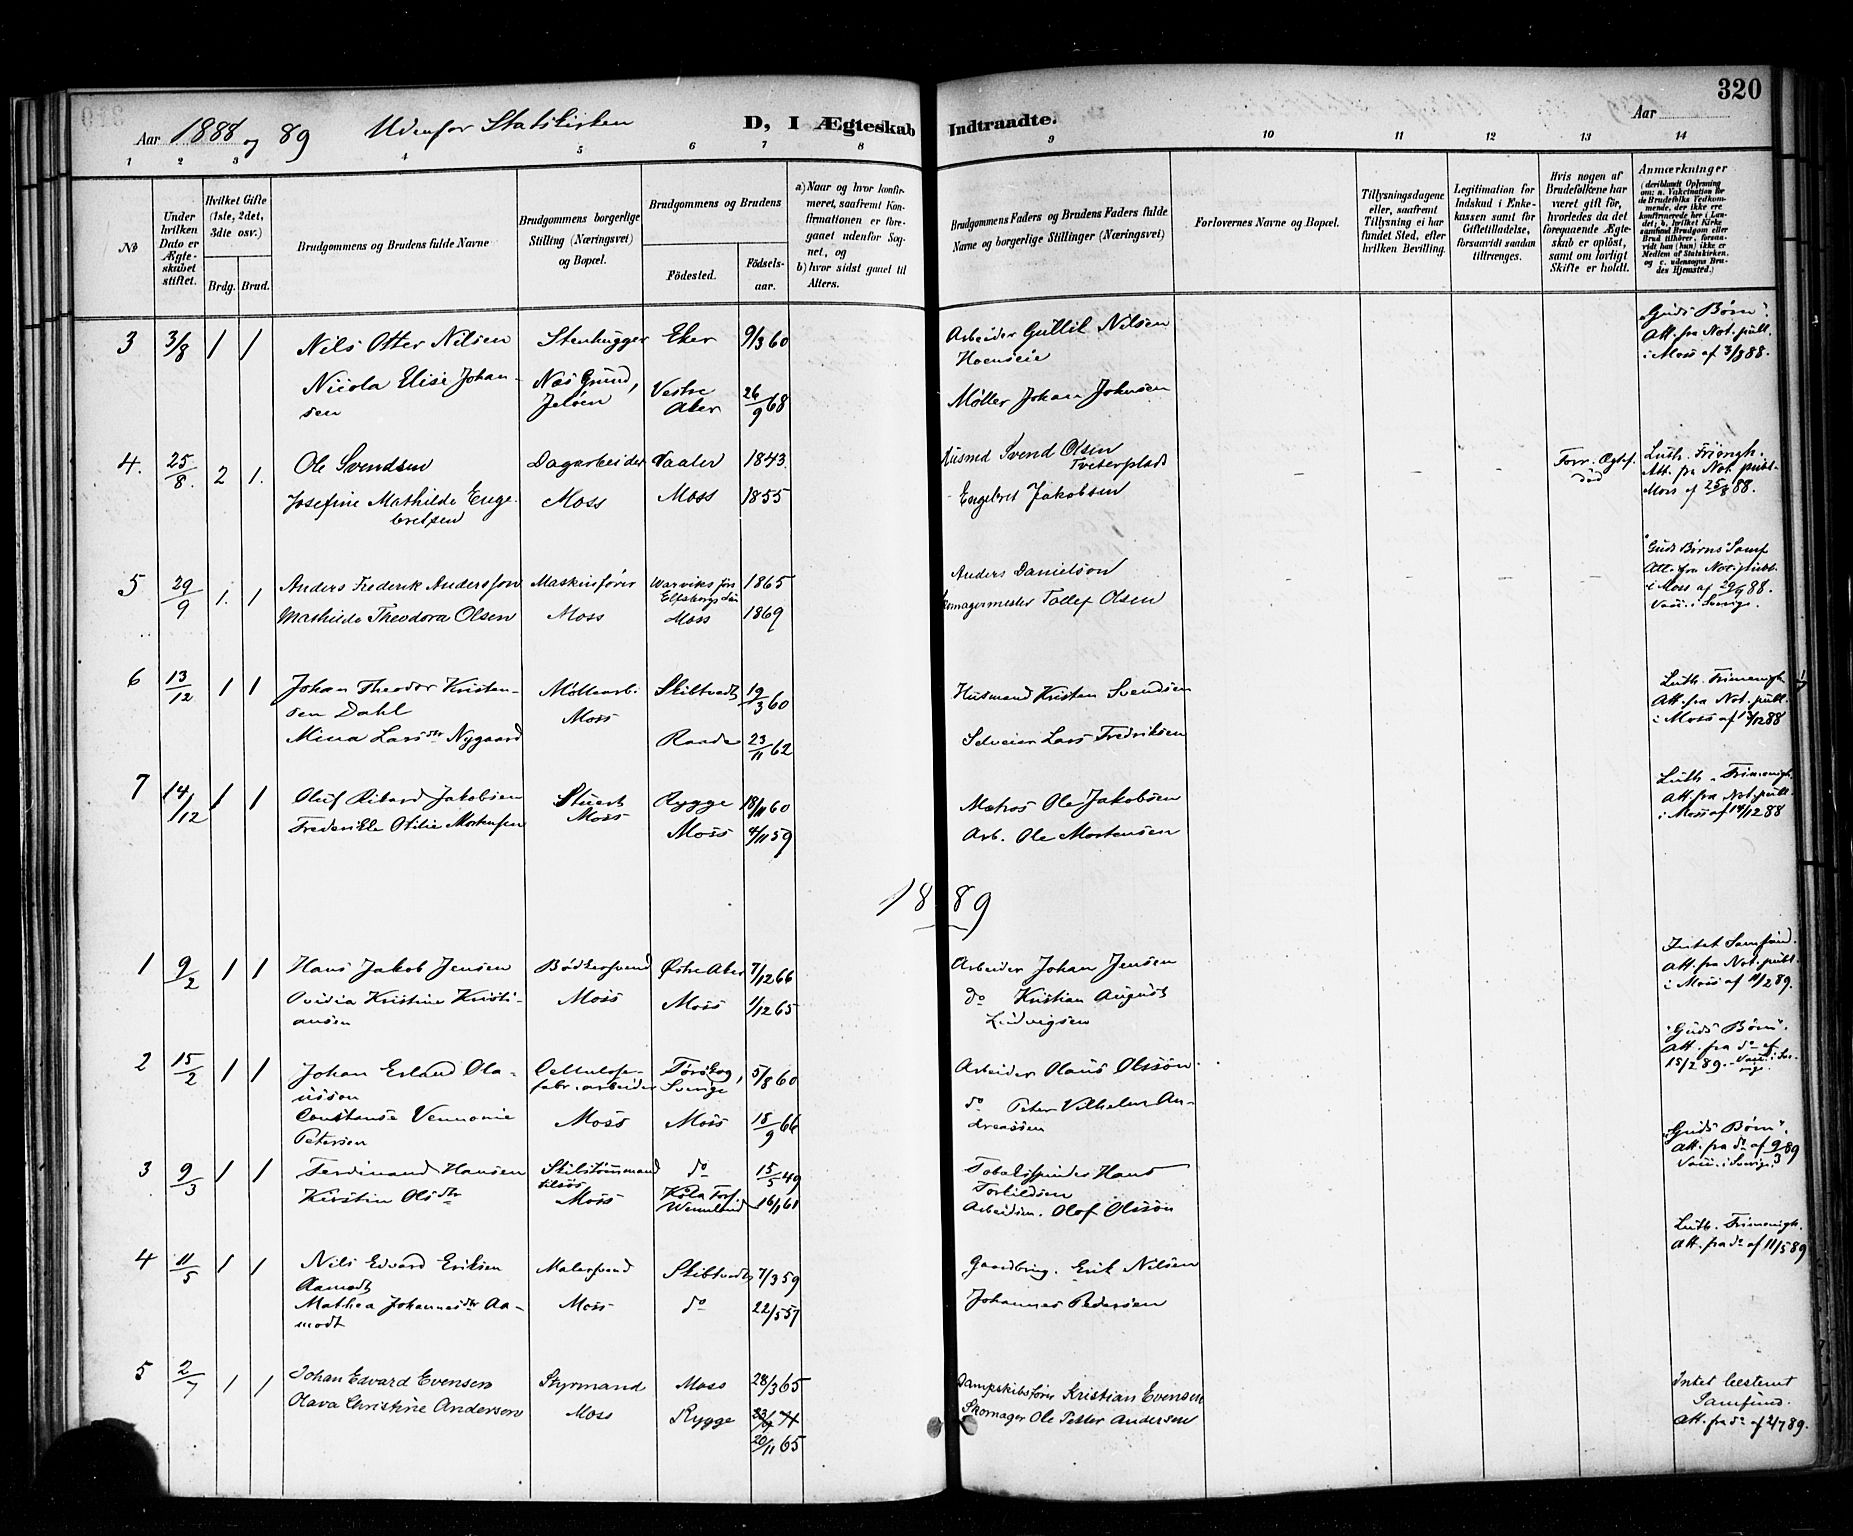 320
Aar 1888 og 89 Udenfor Statskirken D, I Ægteskab Indtraadte. Aar
1 2 3 4 5 6 7 8 9 10 11 12 13 14
No
Under hvilken Dato er Ægteskabet stiftet.
Hvilket Gifte (1ste, 2det, 3dte osv.)
Brdg. Brud.
Brudgommens og Brudens fulde Navne
Brudgommens borgerlige Stilling (Næringsvei) og Bopæl.
Brudgommens og Brudens
Fødested. Fødselsaar.
a) Naar og hvor konfirmeret, saafremt Konfirmationen er foregaaet udenfor Sognet, og
b) hvor sidst gaaet til Alters.
Brudgommens Faders og Brudens Faders fulde Navne og borgerlige Stillinger (Næringsvei)
Forlovernes Navne og Bopæl.
Tillysningsdagene eller, saafremt Tillysning ei har fundet Sted, efter hvilken Bevilling.
Legitimation for Indskud i Enkekassen samt for Giftetilladelse, forsaavidt saadan tiltrænges.
Hvis nogen af Brudefolkene har været gift før, hvorledes da det foregaaende Ægteskab er opløst, samt om lovligt Skifte er holdt.
Anmærkninger
(deriblandt Oplysning om: a. Vakcination for de Brudefolks Vedkommende, der ikke ere konfirmerede her i Landet; b. hvilket Kirkesamfund Brudgom eller Brud tilhører, forsaavidt han (hun) ikke er Medlem af Statskirken, og c. udensogns Brudes Hjemsted.)
3 3/8 1 1 Nils Otter Nilsen Stenhugger Eker 9/3 60 Arbeider Gullik Nilsen "Guds Børn".
Hoenseie Att. fra Not. publ.
Nicola Elise Johan- Næs Grund, Vestre 26/9 68 Møller Johan Johnsen i Moss af 3/8 88.
sen Jeløen Aker
4. 25/8. 2 1. Ole Svendsen Dagarbeider Vaaler 1843. Husmd Svend Olsen - - - Forr. Ægtef. Luth. Frimgh.
Tveterplads død Att. fra Not. publ.
Josefine Mathilde Enge- Moss Moss 1855 Engebret Jakobsen Moss af 25/8 88.
bretsen
5 29/9 1. 1 Anders Frederik Andersson Maskinfører 1865 Anders Danielson - - - "Guds Børns" Samf
Att. fra Not. publ.
Mathilde Theodora Olsen Moss Moss 1869 Skomagermester Tollef Olsen i Moss af 29/9 88.
Vacc. i Sverige.
6 13/12 1 1 Johan Theodor Kristen- Møllearb. Skibtvedt 19/3 60 Husmand Kristen Svendsen Luth. Frimenigh.
sen Dahl Moss Att. fra Not. publ.
Mina Larsdtr Nygaard Raade 23/11 62 Selveier Lars Fredriksen i Moss af 13/12 88
7 14/12 1 1 Oluf Rikard Jakobsen Stuert Rygge 18/11 60 Matros Ole Jakobsen Luth. Frimenigh.
Moss Att. fra Not. publ.
Frederikke Otilie Mortensen Moss 4/11 59 Arb. Ole Mortensen i Moss af 14/12 88
1889
1 9/2 1 1 Hans Jakob Jensen Bødkersvend Østre Aker 7/12 66 Arbeider Johan Jensen Intet Samfund.
Att. fra Not. publ.
Ovidia Kristine Kristi- Moss Moss 1/12 65 do Kristian August i Moss af 11/2 89.
ansen Ludvigsen
2 15/2 1 1 Johan Erland Ola- Cellulose- Torskog, 5/8 60 Arbeider Olaus Olsson "Guds Børn".
usson fabr. arbeider Sverige Att. fra do af
15/2 89. Vacc. i Sverige.
Constanse Vennonie Moss Moss 18/9 66 do Peter Vilhelm An-
Petersen dreassen
3 9/3 1 1 Ferdinand Hansen Skibstømmand do 15/5 49 Tobakspinder Hans "Guds Børn".
tilsøs Torkildsen Att. fra do af 9/3 89
Kirstin Olsdtr Moss Köla Fors. 16/1 61 Arbeidsm. Olof Olsson Vacc. i Sverige.
Wermland
4 11/5 1 1 Nils Edvard Eriksen Malersvend Skibtvedt 7/3 59 Gaardbrug. Erik Nilsen Luth. Frimenigh.
Aamodt Att. fra do af 11/5 89
Mathea Johannesdtr Aa- Moss do 22/5 57 Johannes Pedersen
modt
5 2/7 1 1 Johan Edvard Evensen Styrmand Moss 28/3 65 Dampskibsfører Kristian Evensen Intet bestemt
Samfund.
Olava Christine Andersen Moss Rygge Skomager Ole Petter Andersen Att. fra do af 2/7 89.
20/11 65